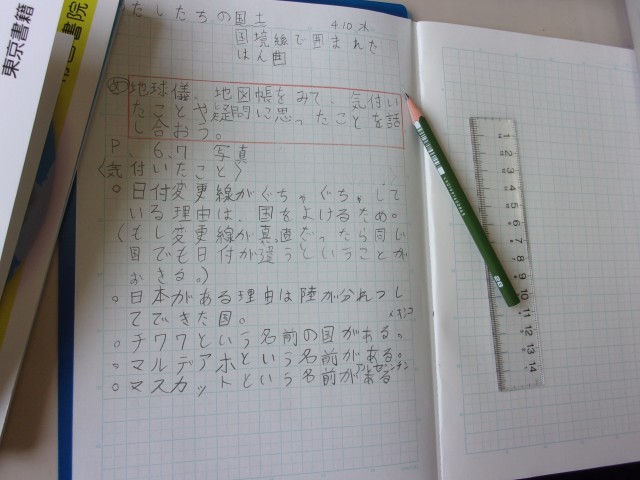 東京書籍
書院
たしたちの国土 4.10 水
国境線で囲まれた
はん囲
め 地球儀、地図帳をみて、気付い
たことや疑問に思ったことを話
し合おう。
P、6.7 写真
〈気付いたこと〉
○日付変更線がぐちゃぐちゃして
いる理由は、国をよけるため。
(もし変更線が真直だったら同じ
国でも日付が違うということが
おきる。)
○日本がある理由は陸が分れつし
てできた国。
メキシコ
○チワワという名前の国がある。
○マルデアホという名前がある。
アルゼンチン
○マスカットという名前がある
1 2 3 4 5 6 7 8 9 10 11 12 13 14
2B